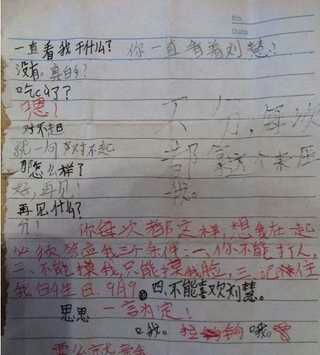 一直看我干什么? 你一直看着刘慧!
没有,真的?
吃c了?
嗯!
对不起 不分,每次
就一句对不起 都拿这个来压
那怎么样了 我。
好,再见!
再见什么?
分! 你每次都这样,想我在一起
必须答应我三个条件:一、你不能打人,
二、不能摸我,只能摸我脸,三、记住
我的生日。9月9 四、不能喜欢刘慧。
思思 一言为定!
哦。拉钩 哦。